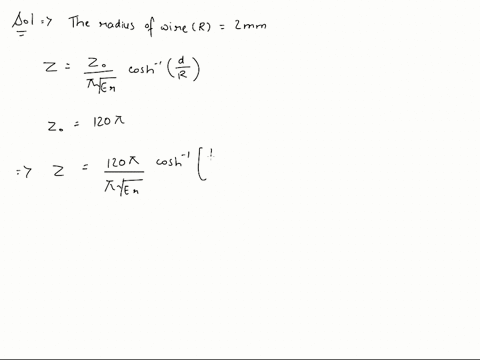 Sol => The radius of wire (R) = 2mm
Z = Z₀ / π√εr cosh⁻¹ (d/R)
Z₀ = 120π
=> Z = 120π / π√εr cosh⁻¹ [